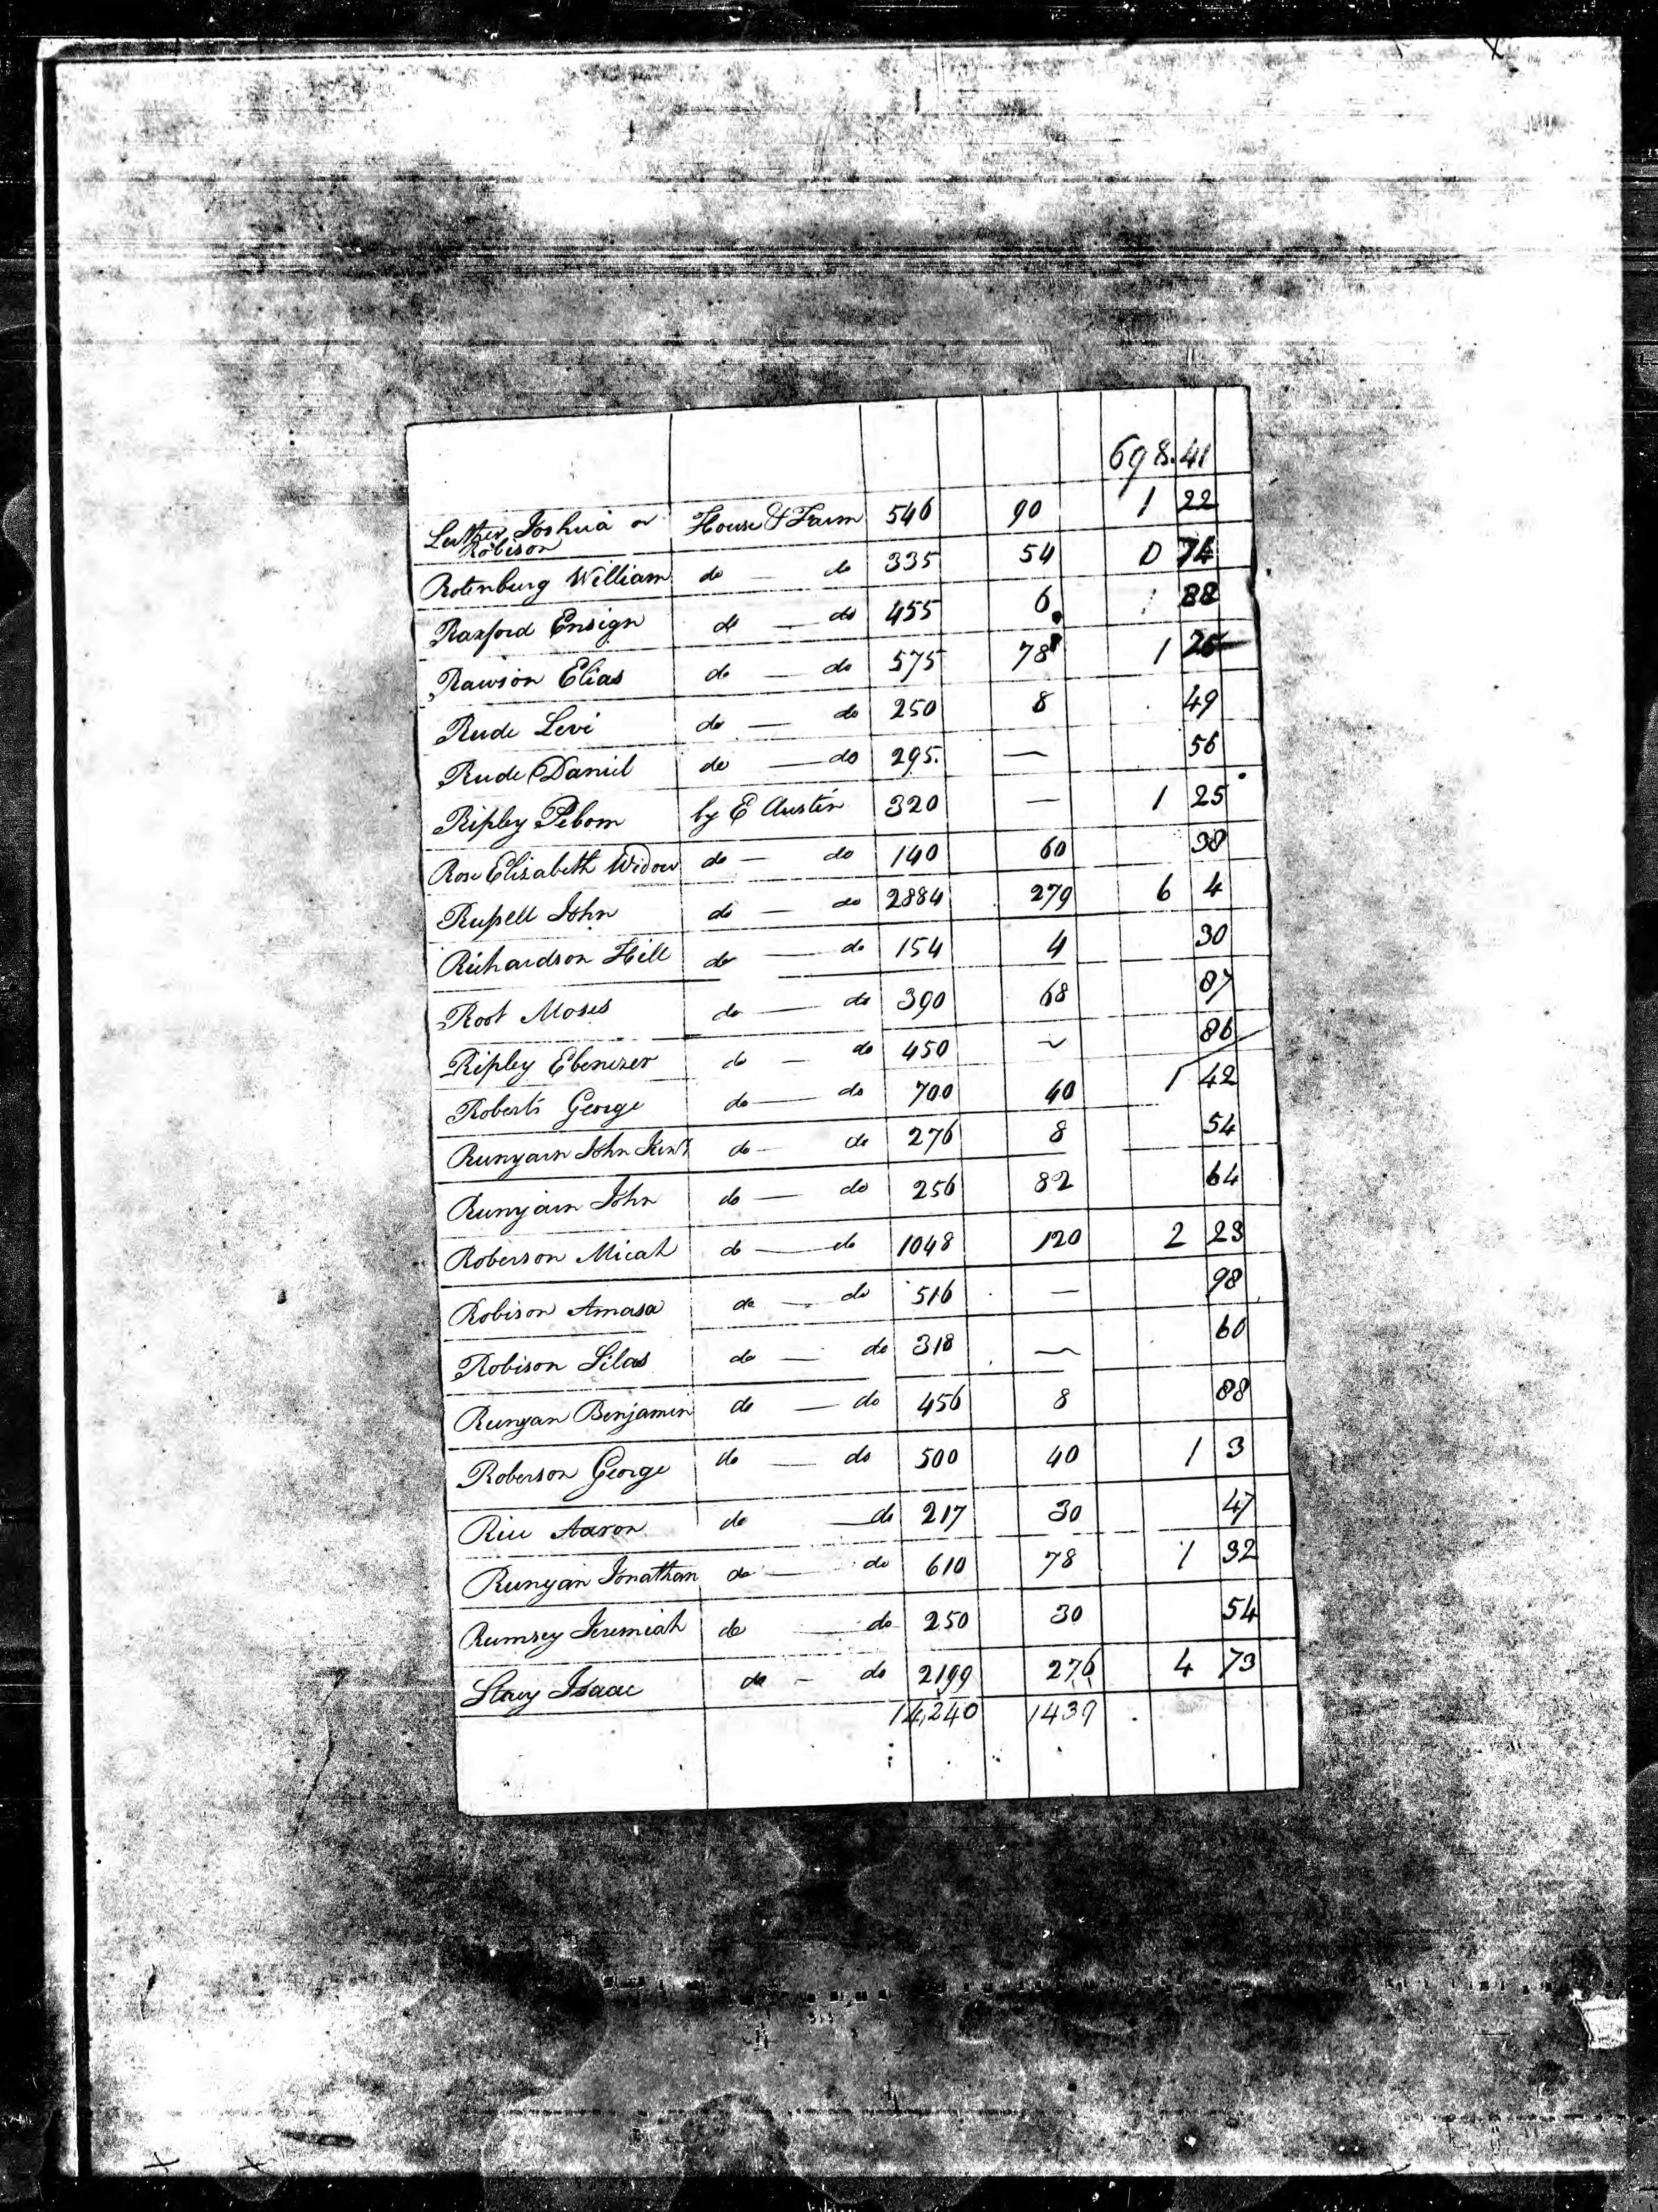 698.41
Luther Joshua or House & Farm 546 90 1 22
Robison
Rotenburg William do — do 335 54 0 74
Raxford Ensign do — do 455 6 88
Rawson Elias do — do 575 78 1 26
Rude Levi do — do 250 8 49
Rude Daniel do — do 295. — 56
Ripley by E Austin 320 — 1 25
Rose Elizabeth Widow do — do 140 60 38
Russell John do — do 2884 279 6 4
Richardson Hill do — do 154 4 30
Root Moses do — do 390 68 87
Ripley Ebenezer do — do 450 — 86
Roberts George do — do 700 40 1 42
Runyain John do — do 276 8 54
Runyain John do — do 256 82 64
Roberson Micah do — do 1048 120 2 23
Robison Amasa do — do 516 — 98
Robison Silas do — do 318 — 60
Runyan Benjamin do — do 456 8 88
Roberson George do — do 500 40 1 3
Rice Aaron do — do 217 30 47
Runyan Jonathan do — do 610 78 1 32
Rumsey Jeremiah do — do 250 30 54
Stacy Isaac do — do 2199 276 4 73
14,240 1439